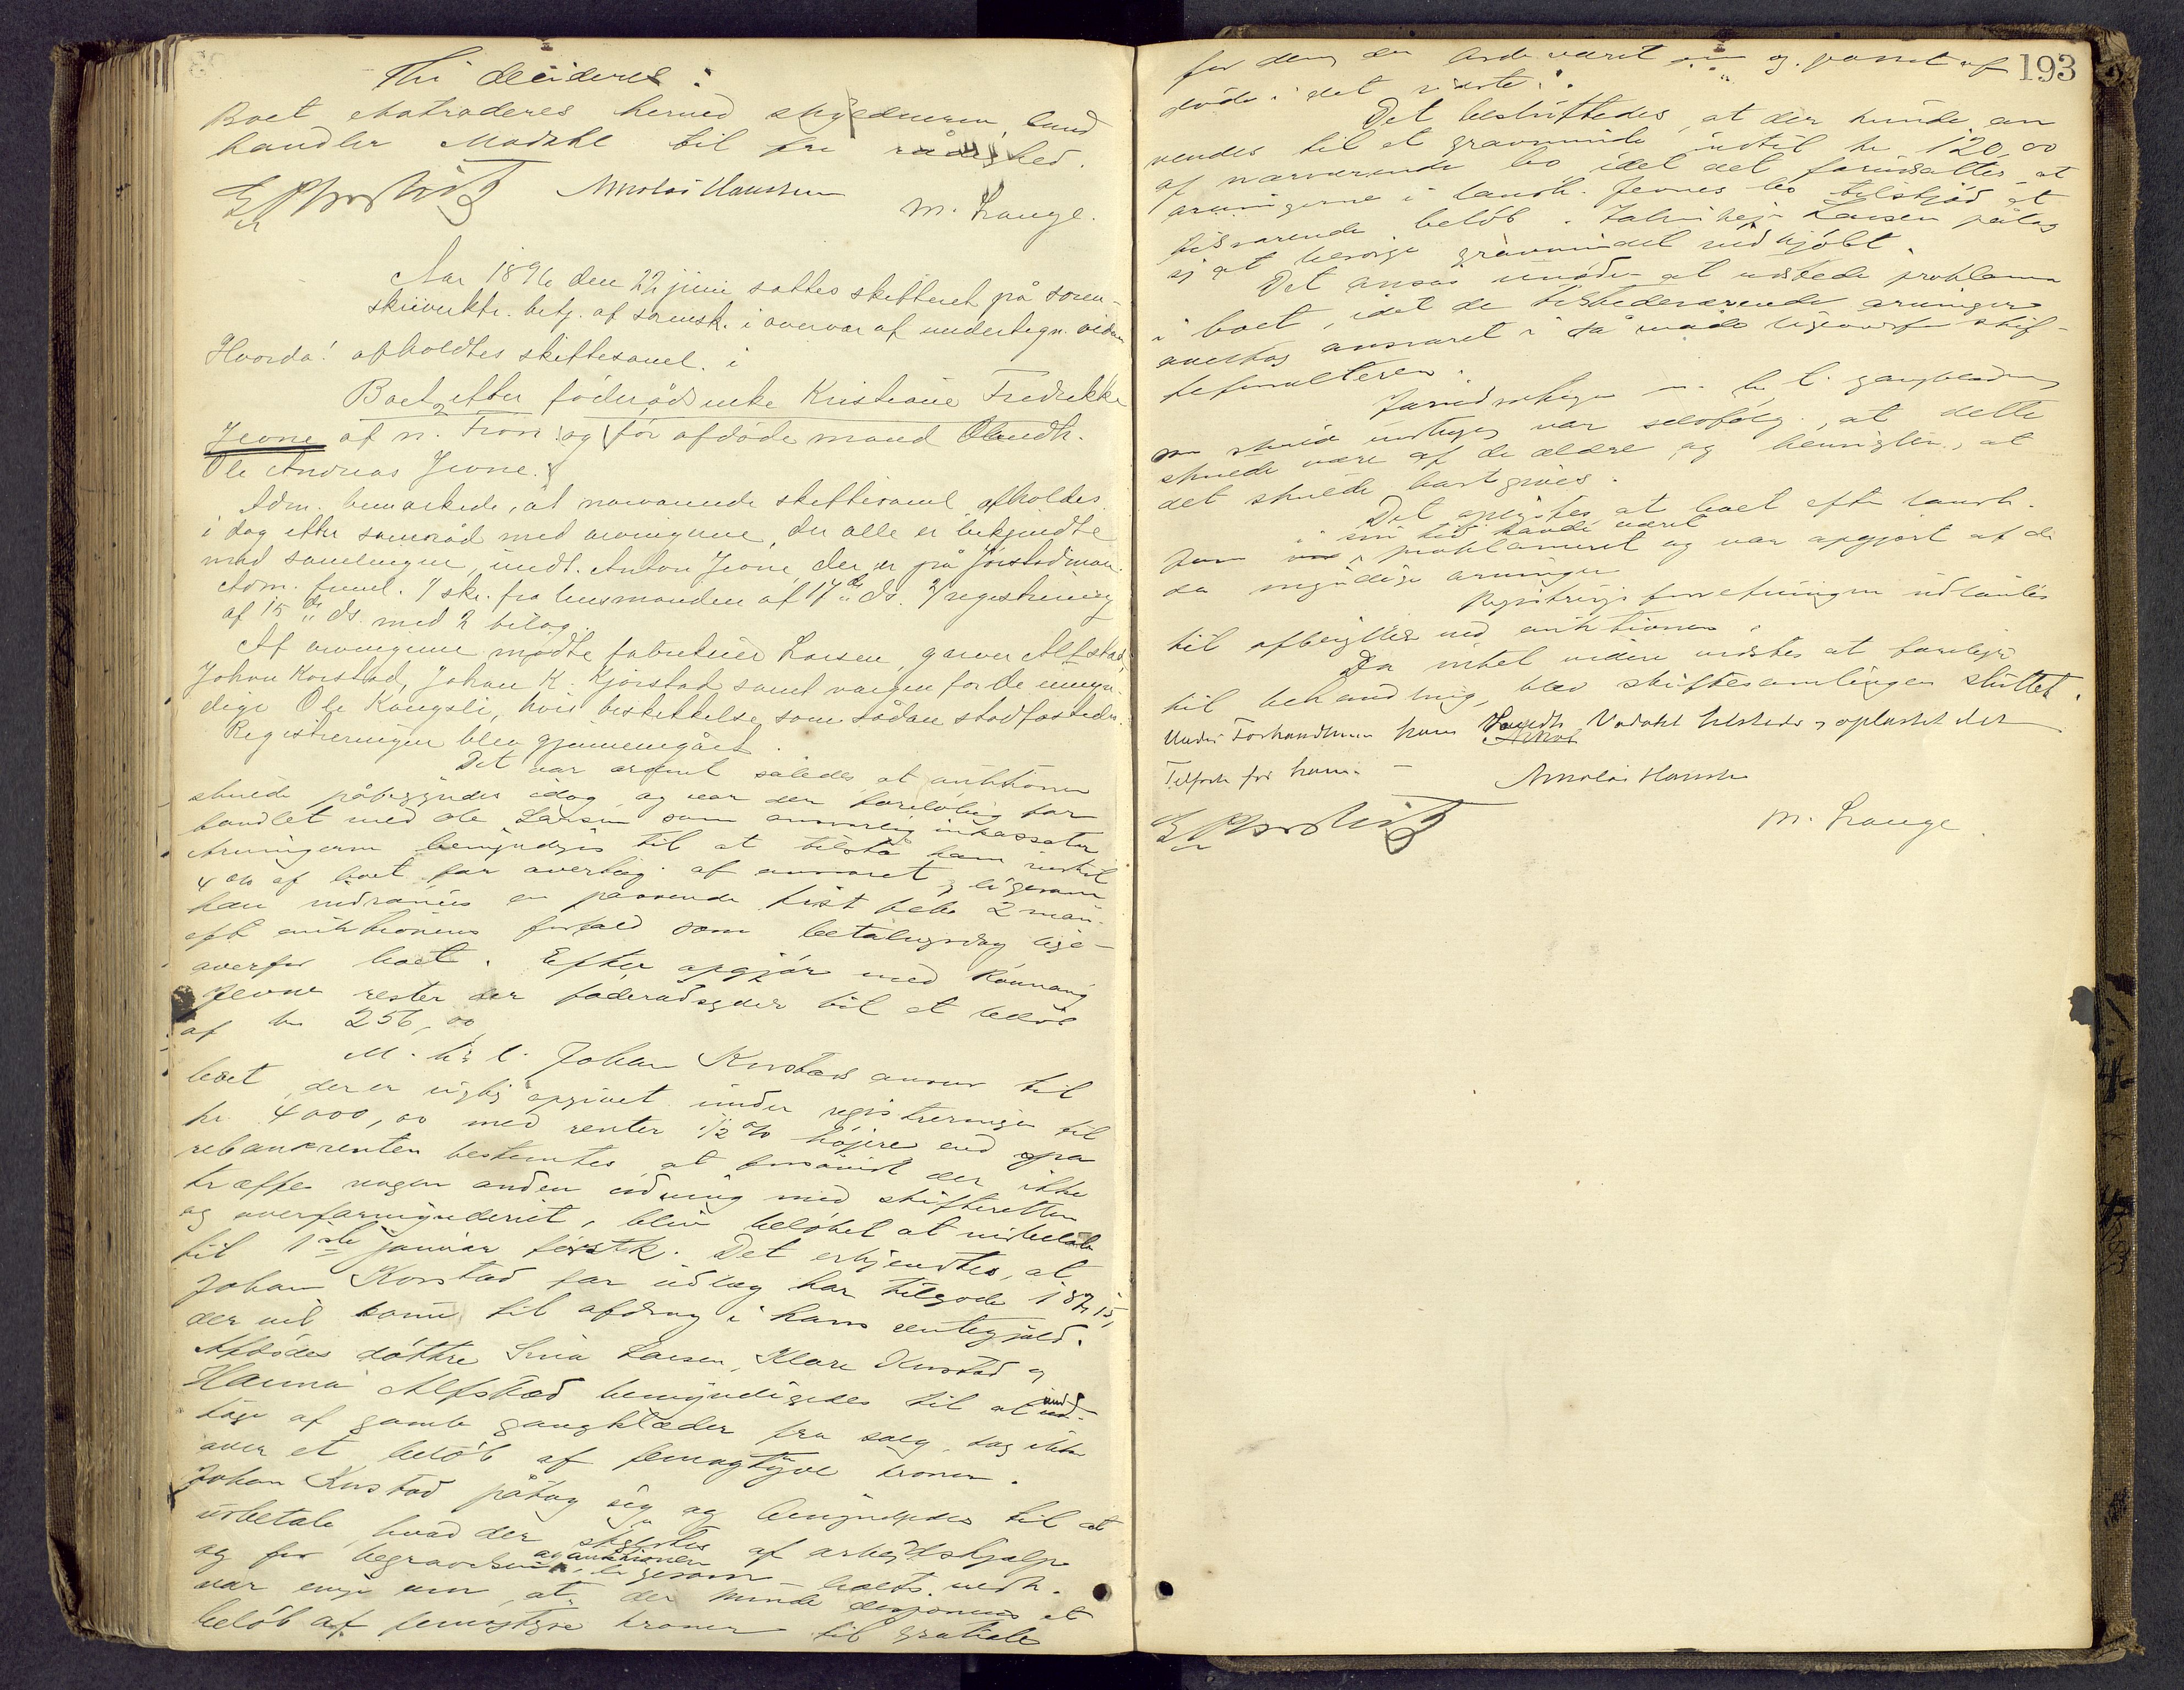 Thi decideres:
Boet extraderes herved skyldneren, land
handler Modahl til fri rådighed.
Nicolai Hanssen
M. Hauge.
Aar 1896 den 22 juni sattes skifteret på soren-
skriverktr. betj. af sorensk. i overvær af undertegn. vidner
Hvorda! afholdtes skiftesaml. i
Boet efter föderådsenke Kristiane Fredrikke
Jevne af n. Fron og før afdöde mand landh.
Ole Andreas Jevne.
Adm. bemærkede, at nærværende skiftesaml. afholdes
i dag efter samråd med arvingerne, der alle er bekjendte
med samlingen, undt. Anton Jevne, der er på Jörstadmoen.
Adm. freml. 1 skr. fra lensmanden af 17de ds. 2 registrering
af 15de ds. med 2 bilag.
Af arvingerne mödte fabrikeier Larsen, garver Alfstad,
Johan Korstad, Johan K. Kjorstad samt værgen for de umyn-
dige Ole Kongsli, hvis beskikkelse som sådan stadfæstedes.
Registreringen blev gjennemgået.
Det var ordnet således, at auktionen
skulde påbegyndes idag, og var der foreløbig for
handlet med Ole Larsen som ansvarlig inkassator
Arvingerne bemyndiges til at tilstå ham indtil
4 % af boet for overtag. af ansvaret, ligesom
han indrömmes en passende frist hele 2 mån.
eft. auktionens forfald som betalingsdag lige-
overfor boet. Efter opgjör med
Jevne rester der föderådsyder til et belöb
af kr 256,00
M. h. t. Johan Korstads ansvar til
boet, der er rigtig opgivet under registreringen til
kr. 4000,00 med renter 1/2 % højere end spa
rebankrenten bestemtes, at forsåvidt der ikke
træffes nogen anden ordning med skifteretten
og overformynderiet, blir belöbet at indbetale
til 1ste januar förstk. Det erkjendtes, at
Johan Korstad for udlæg har tilgode 187,15,
der vil komme til afdrag i hans rentegjæld.
Afdödes döttre Lina Larsen, Klara Korstad og
Hanna Alfstad bemyndigedes til at und-
tage af gamle gangklæder fra salg, dog ikke
over et belöb af femogtyve kroner.
Johan Korstad påtog sig og bemyndiges til at
udbetale, hvad der skyldtes af arbejdshjælp
og for begravelsen og auktionen, ligesom
var enige om, at der kunde disponeres et
belöb af femogtyve kroner til gratiale
193
for den, der havde været og passet af
döde i det sidste.
Det besluttedes, at der kunde an
vendes til et gravminde indtil kr 120,00
af nærværende bo idet det forudsattes, at
arvingerne i landh. Jevnes bo tilsköd et
tilsvarende belöb. Fabrikejer Larsen påtog
sig at besörge gravmindet indkjöbt.
Det ansås unöd. at udstede proklama
i boet, idet de tilstedeværende arvinger
overtog ansvaret i så måde ligeoverfor skif-
teforvalteren.
m. h. t. gangklæderne
som skulde undtages var selvfölg., at dette
skulde være af de ældre og hensigten, at
det skulde bortgives.
Det oplystes, at boet efter landh.
Jevne i sin tid havde været proklameret og var opgjort af de
da myndige arvinger
Registreringsforretningen udlåntes
til afbenyttelse ved auktionen.
Da intet videre vidstes at foretages
til behandling, blev skiftesamlingen sluttet.
Under Forhandlingen kom Landh. Modahl tilstede og oplæstes det
Tilförte for ham.
Nicolai Hanssen
M. Hauge.